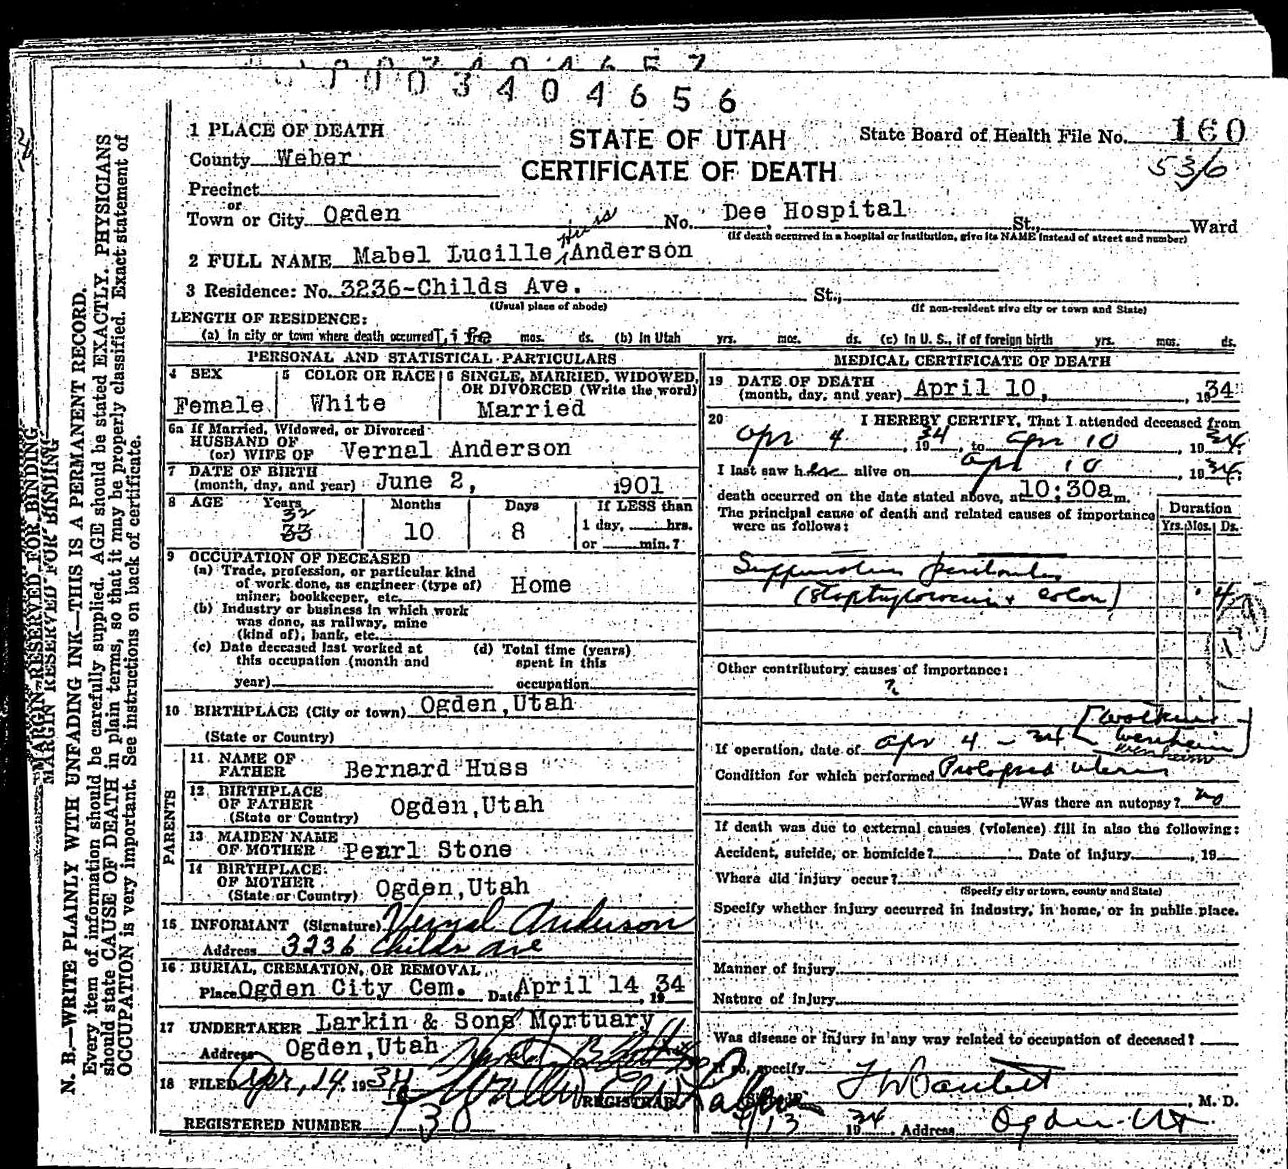 0003404656
1 PLACE OF DEATH
STATE OF UTAH
CERTIFICATE OF DEATH
State Board of Health File No. 160
County Weber
53/6
Precinct
or
Town or City Ogden No. Dee Hospital St., Ward
(If death occurred in a hospital or institution, give its NAME instead of street and number)
2 FULL NAME Mabel Lucille Huss Anderson
3 Residence: No. 3236-Childs Ave. St.,
(Usual place of abode) (If non-resident give city or town and State)
LENGTH OF RESIDENCE:
(a) In city or town where death occurred Life mos. ds. (b) In Utah yrs. mos. ds. (c) In U. S., if of foreign birth yrs. mos. ds.
PERSONAL AND STATISTICAL PARTICULARS
4 SEX 5 COLOR OR RACE 6 SINGLE, MARRIED, WIDOWED, OR DIVORCED (Write the word)
Female White Married
6a If Married, Widowed, or Divorced
HUSBAND OF
(or) WIFE OF Vernal Anderson
7 DATE OF BIRTH
(month, day, and year) June 2, 1901
8 AGE Years Months Days If LESS than
32
33 10 8 1 day, hrs.
or min.?
9 OCCUPATION OF DECEASED
(a) Trade, profession, or particular kind
of work done, as engineer (type of) Home
miner; bookkeeper, etc.
(b) Industry or business in which work
was done, as railway, mine
(kind of), bank, etc.
(c) Date deceased last worked at (d) Total time (years)
this occupation (month and spent in this
year) occupation
10 BIRTHPLACE (City or town) Ogden, Utah
(State or Country)
PARENTS
11 NAME OF
FATHER Bernard Huss
12 BIRTHPLACE
OF FATHER Ogden, Utah
(State or Country)
13 MAIDEN NAME
OF MOTHER Pearl Stone
14 BIRTHPLACE
OF MOTHER Ogden, Utah
(State or Country)
15 INFORMANT (Signature) Vernal Anderson
Address 3236 Childs Ave
16 BURIAL, CREMATION, OR REMOVAL
Place Ogden City Cem. Date April 14 1934
17 UNDERTAKER Larkin & Sons Mortuary
Address Ogden, Utah
18 FILED Apr, 14, 1934
REGISTRAR
REGISTERED NUMBER 130
MEDICAL CERTIFICATE OF DEATH
19 DATE OF DEATH
(month, day, and year) April 10, 1934
20 I HEREBY CERTIFY, That I attended deceased from
Apr 4, 1934, to Apr 10, 1934.
I last saw her alive on Apr 10, 1934.
death occurred on the date stated above, at 10:30a m.
The principal cause of death and related causes of importance
were as follows:
Duration
Yrs. Mos. Ds.
Suppurative peritonitis 4
(Staphylococcus & colon)
Other contributory causes of importance:
?
If operation, date of Apr 4 - 34
Condition for which performed Prolapsed uterus
Was there an autopsy? no
If death was due to external causes (violence) fill in also the following:
Accident, suicide, or homicide? Date of injury , 19
Where did injury occur?
(Specify city or town, county and State)
Specify whether injury occurred in industry, in home, or in public place.
Manner of injury
Nature of injury
Was disease or injury in any way related to occupation of deceased?
If so, specify
M. D.
4/13 1934 Address Ogden Ut
MARGIN RESERVED FOR BINDING
MARGIN RESERVED FOR BINDING
N. B.—WRITE PLAINLY WITH UNFADING INK—THIS IS A PERMANENT RECORD.
Every item of information should be carefully supplied. AGE should be stated EXACTLY. PHYSICIANS
should state CAUSE OF DEATH in plain terms, so that it may be properly classified. Exact statement of
OCCUPATION is very important. See instructions on back of certificate.